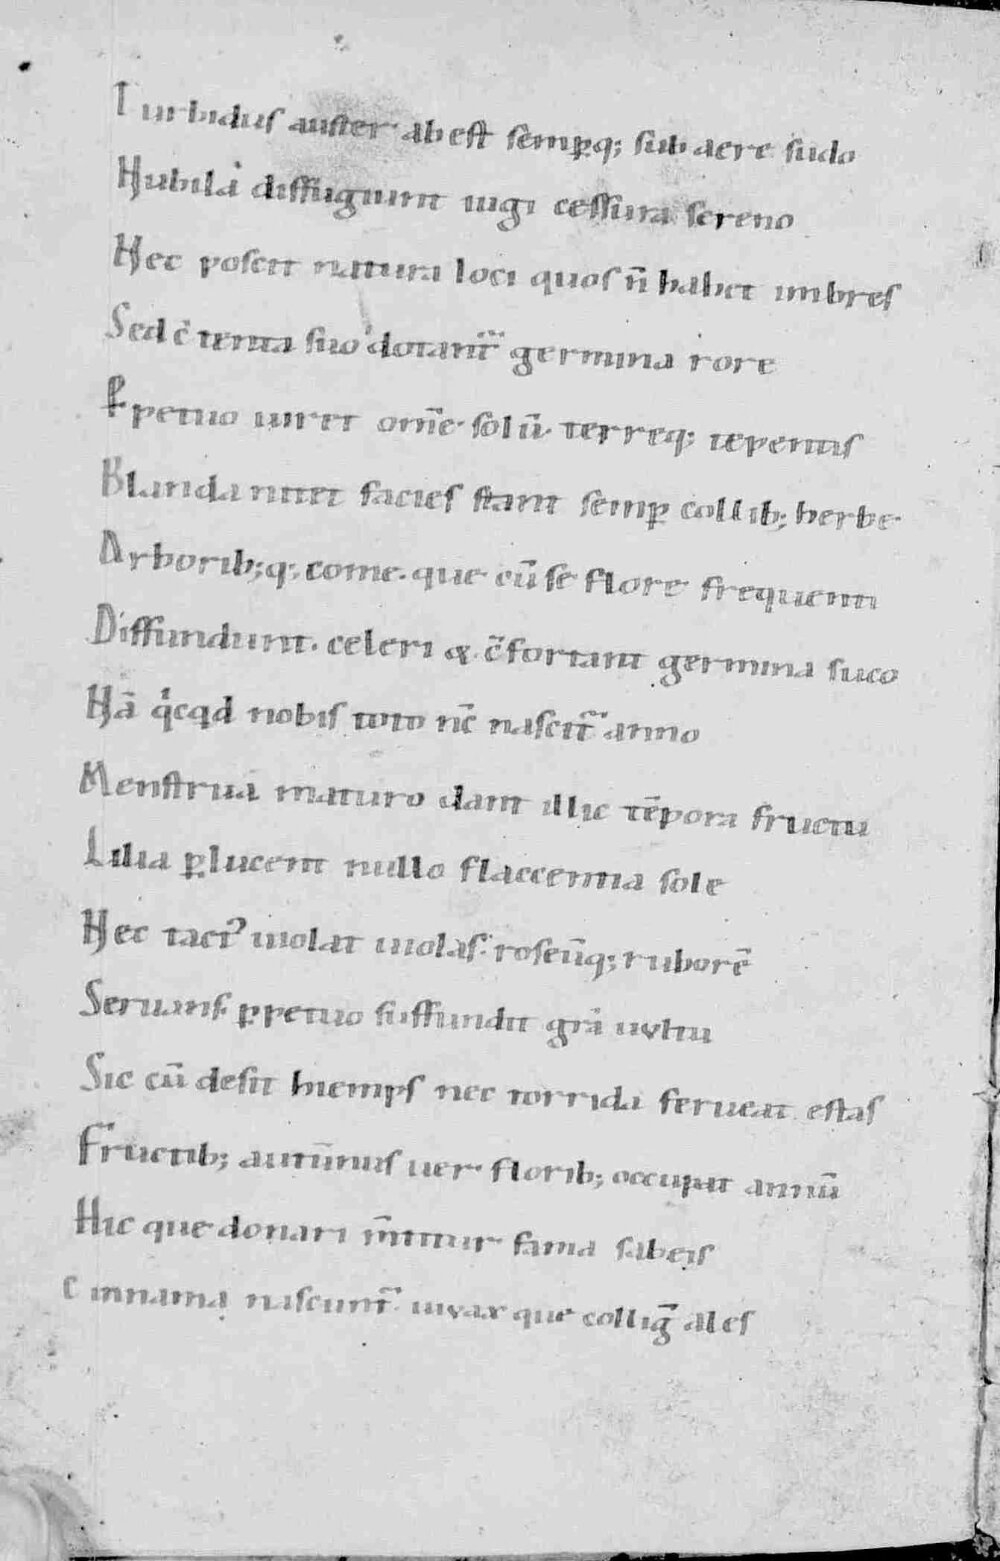 Turbidus auster abest semꝑq; sub aere sudo
Nubila diffugiunt iugi cessura sereno
Nec poscit natura loci quos n̄ habet imbres
Sed c̄tenta suo dotant᷑ germina rore
Ꝑpetuo uiret om̄e solū. terreq; tepentis
Blanda nitet facies stant semꝑ collib; herbe
Arborib; q; come. que cū se flore frequenti
Diffundunt. celeri & c̄fortant germina suco
Nā qͥcqͥd nobis toto nc̄ nascit᷑ anno
Menstrua maturo dant illic tēpora fructu
Lilia ꝑlucent nullo flaccentia sole
Nec tactꝰ uiolat uiolas. roseūq; ruborē
Seruans ꝑpetuo suffundit grā uultu
Sic cū desit hiemps nec torrida ferueat estas
Fructib; autūnus uer florib; occupat annū
Hic que donari m̄titur fama sabeis
Cinnama nascunt᷑. uiuax que collig̅ ales